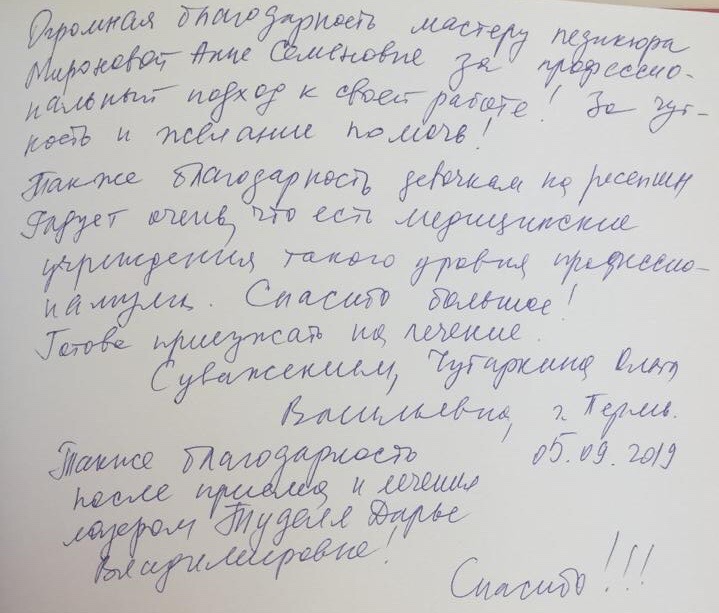 Огромная благодарность мастеру педикюра
Мироновой Анне Семёновне за профессио-
нальный подход к своей работе! За чут-
кость и желание помочь!
Также благодарность девочкам на ресепшн
Радует очень, что есть медицинские
учреждения такого уровня профессио-
нализма. Спасибо большое!
Готова приезжать на лечение.
С уважением, Чутаркина Ольга
Васильевна, г. Пермь.
05.09.2019
Также благодарность
после приема и лечения
лазером Дарье
Владимировне!
Спасибо!!!